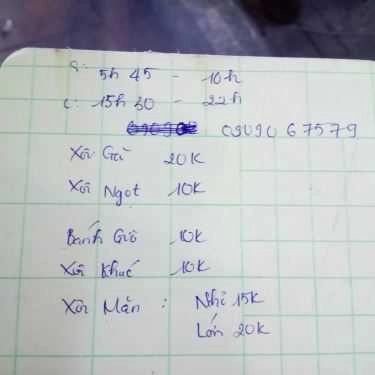 S: 5h 45 - 10h
C: 15h 30 - 22h
090906 67579
Xôi Gà 20K
Xôi Ngọt 10K
Bánh Giò 10K
Xôi Khúc 10K
Xôi Mặn : Nhỏ 15K
Lớn 20K